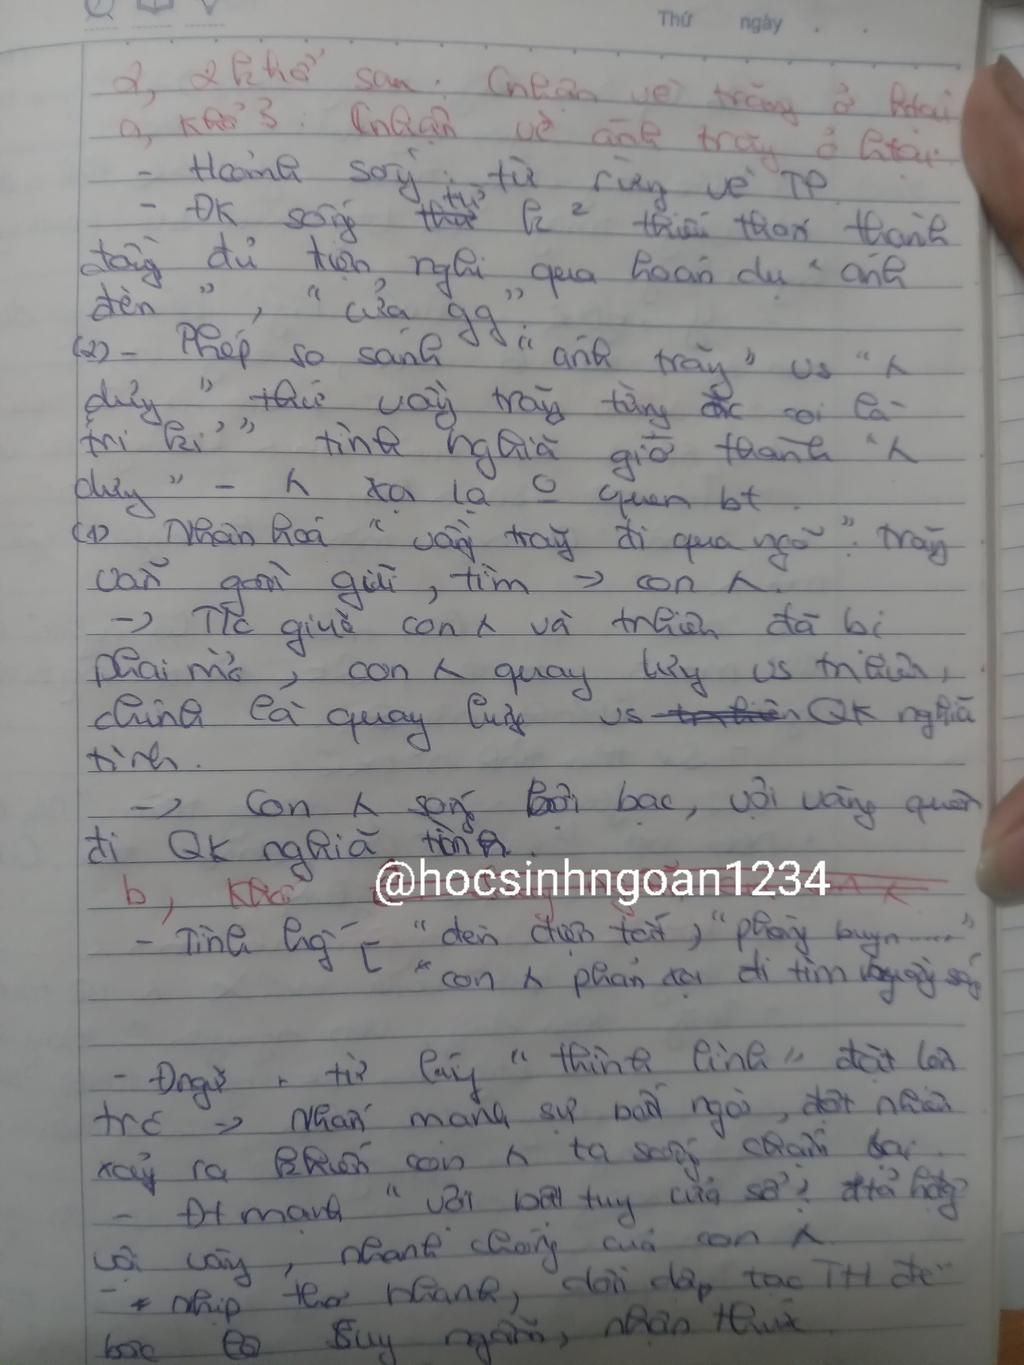 Thứ ngày . .
2, 2 khổ sau: Cnhận về trăng ở htại
a, Khổ 3: Cnhận về ánh trăng ở htại.
- Hoành sống: từ rừng về TP
- ĐK sống từ k² thiếu thốn thành
đầy đủ tiện nghi qua hoán dụ "ánh
đèn", "cửa gg"
(2) - Phép so sánh "ánh trăng" vs "
dưng" thứ vầng trăng từng đc coi là
tri kỉ" tình nghĩa giờ thành "
dưng" - xa lạ quen bt.
(1) Nhân hoá "vầng trăng đi qua ngõ": trăng
vẫn gần gũi, tìm -> con
-> T/c giữa con và trhiên đã bị
phai mờ, con quay lưng vs trhiên,
chính là quay lưng vs QK nghĩa
tình.
-> Con sống bội bạc, vội vàng quên
đi QK nghĩa tình.
b, Khổ
@hocsinhngoan1234
- Tình hg "đèn điện tắt", "phòng buyn....."
con phản xạ đi tìm sáng
- Đngữ, từ láy "thình lình" đặt lên
trc -> Nhấn mạnh sự bất ngờ, đột nhiên
xảy ra khiến con ta sống
- Đt mạnh "vội bật tung cửa sổ": hđộng
vội vàng, nhanh chóng của con
- nhịp thơ nhanh, dồn dập tạo TH để
bộc lộ suy ngẫm, nhận thức